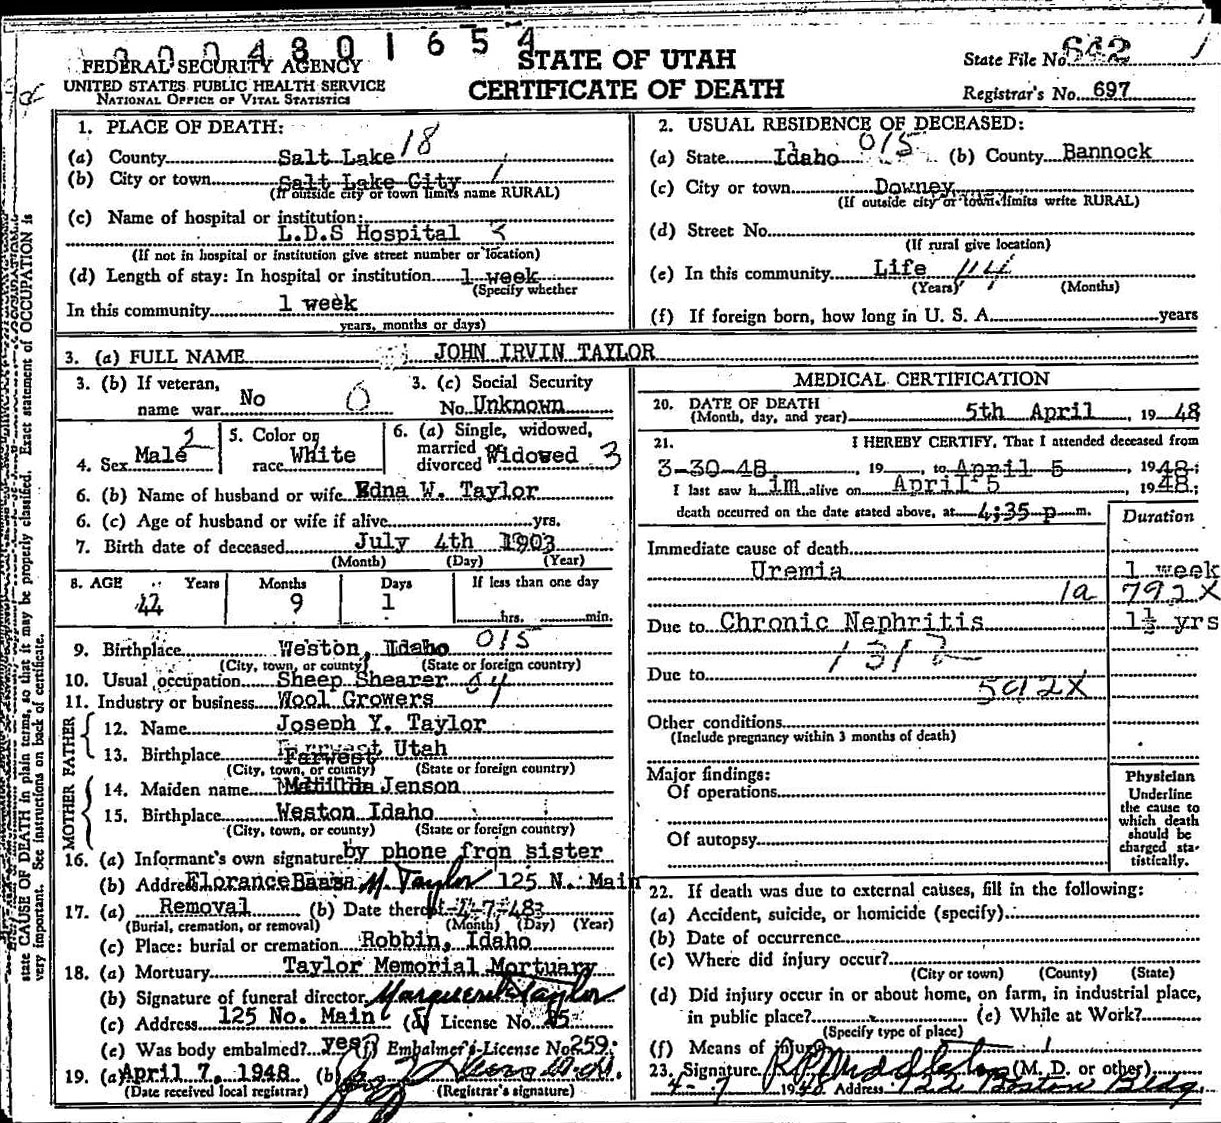 0004801654
FEDERAL SECURITY AGENCY
UNITED STATES PUBLIC HEALTH SERVICE
NATIONAL OFFICE OF VITAL STATISTICS
STATE OF UTAH
CERTIFICATE OF DEATH
State File No. 642
Registrar's No. 697
1. PLACE OF DEATH:
(a) County Salt Lake 18
(b) City or town Salt Lake City
(If outside city or town limits name RURAL)
(c) Name of hospital or institution:
L.D.S Hospital 3
(If not in hospital or institution give street number or location)
(d) Length of stay: In hospital or institution 1 week
(Specify whether
In this community 1 week
years, months or days)
2. USUAL RESIDENCE OF DECEASED:
(a) State Idaho 015 (b) County Bannock
(c) City or town Downey
(If outside city or town limits write RURAL)
(d) Street No.
(If rural give location)
(e) In this community Life 44
(Years) (Months)
(f) If foreign born, how long in U. S. A. years
3. (a) FULL NAME JOHN IRVIN TAYLOR
3. (b) If veteran, name war No 0
3. (c) Social Security No. Unknown
4. Sex Male 2
5. Color or race White
6. (a) Single, widowed, married or divorced Widowed 3
6. (b) Name of husband or wife Edna W. Taylor
6. (c) Age of husband or wife if alive yrs.
7. Birth date of deceased July 4th 1903
(Month) (Day) (Year)
8. AGE Years Months Days If less than one day
44 9 1 hrs. min.
9. Birthplace Weston, Idaho 015
(City, town, or county) (State or foreign country)
10. Usual occupation Sheep Shearer 04
11. Industry or business Wool Growers
FATHER
12. Name Joseph Y. Taylor
13. Birthplace Farwest Utah
(City, town, or county) (State or foreign country)
MOTHER
14. Maiden name Matilda Jenson
15. Birthplace Weston Idaho
(City, town, or county) (State or foreign country)
16. (a) Informant's own signature by phone fron sister
(b) Address Florance M. Taylor 125 N. Main
17. (a) Removal (b) Date thereof 4-7-48
(Burial, cremation, or removal) (Month) (Day) (Year)
(c) Place: burial or cremation Robbin, Idaho
18. (a) Mortuary Taylor Memorial Mortuary
(b) Signature of funeral director Marguerite Taylor
(c) Address 125 No. Main (d) License No. 45
(e) Was body embalmed? yes (f) Embalmer's License No. 259
19. (a) April 7, 1948 (b)
(Date received local registrar) (Registrar's signature)
MEDICAL CERTIFICATION
20. DATE OF DEATH
(Month, day, and year) 5th April, 1948
21. I HEREBY CERTIFY, That I attended deceased from
3-30-48, 19 , to April 5, 1948;
I last saw h im alive on April 5, 1948;
death occurred on the date stated above, at 4;35 p m.
Duration
Immediate cause of death
Uremia 1 week
1a 792X
Due to Chronic Nephritis 1½ yrs
1312
Due to
592X
Other conditions
(Include pregnancy within 3 months of death)
Major findings:
Of operations
Of autopsy
Physician
Underline
the cause to
which death
should be
charged sta-
tistically.
22. If death was due to external causes, fill in the following:
(a) Accident, suicide, or homicide (specify)
(b) Date of occurrence
(c) Where did injury occur?
(City or town) (County) (State)
(d) Did injury occur in or about home, on farm, in industrial place,
in public place? (e) While at Work?
(Specify type of place)
(f) Means of injury
23. Signature R P Middleton (M. D. or other)
4-7 1948 Address 922 Boston Bldg
state CAUSE OF DEATH in plain terms, so that it may be properly classified. Exact statement of OCCUPATION is
very important. See instructions on back of certificate.